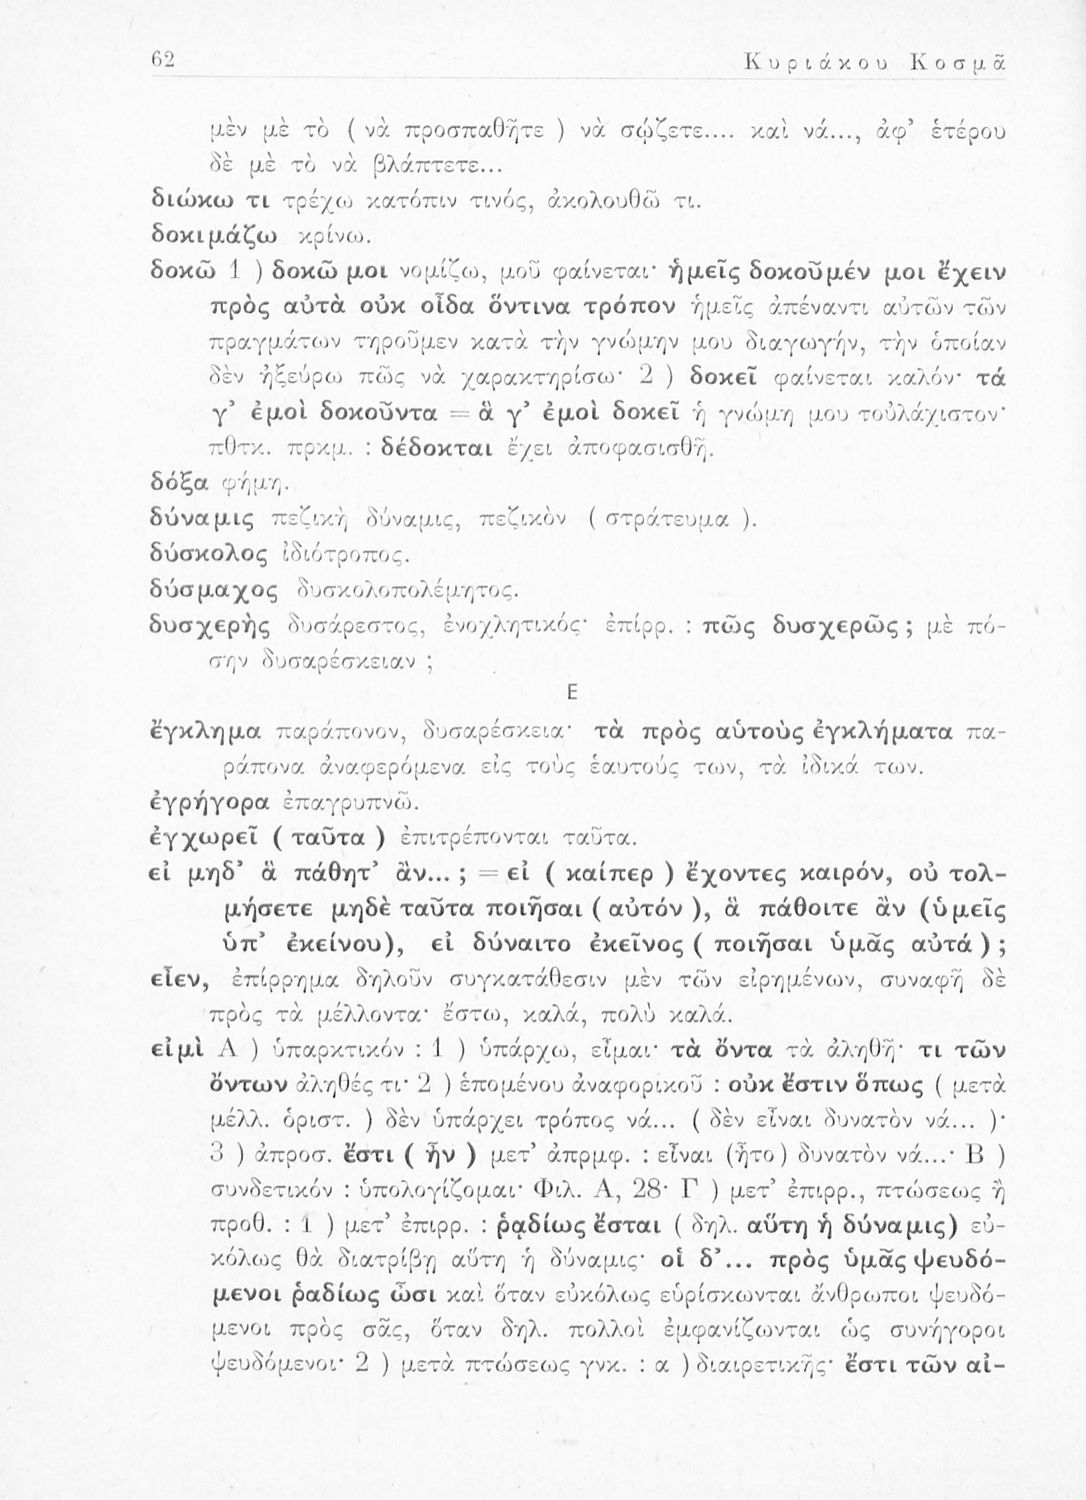 62
Κυριάκου Κοσμᾶ
μὲν μὲ τὸ ( νὰ προσπαθῆτε ) νὰ σῴζετε.... καὶ νά..., ἀφ’ ἑτέρου
δὲ μὲ τὸ νὰ βλάπτετε...
διώκω τι τρέχω κατόπιν τινός, ἀκολουθῶ τι.
δοκιμάζω κρίνω.
δοκῶ 1 ) δοκῶ μοι νομίζω, μοῦ φαίνεται· ἡμεῖς δοκοῦμέν μοι ἔχειν
πρὸς αὐτὰ οὐκ οἶδα ὅντινα τρόπον ἡμεῖς ἀπέναντι αὐτῶν τῶν
πραγμάτων τηροῦμεν κατὰ τὴν γνώμην μου διαγωγήν, τὴν ὁποίαν
δὲν ἠξεύρω πῶς νὰ χαρακτηρίσω· 2 ) δοκεῖ φαίνεται καλόν· τά
γ’ ἐμοὶ δοκοῦντα = ἃ γ’ ἐμοὶ δοκεῖ ἡ γνώμη μου τοὐλάχιστον·
πθτκ. πρκμ. : δέδοκται ἔχει ἀποφασισθῆ.
δόξα φήμη.
δύναμις πεζικὴ δύναμις, πεζικὸν ( στράτευμα ).
δύσκολος ἰδιότροπος.
δύσμαχος δυσκολοπολέμητος.
δυσχερὴς δυσάρεστος, ἐνοχλητικός· ἐπίρρ. : πῶς δυσχερῶς ; μὲ πό-
σην δυσαρέσκειαν ;
Ε
ἔγκλημα παράπονον, δυσαρέσκεια· τὰ πρὸς αὑτοὺς ἐγκλήματα πα-
ράπονα ἀναφερόμενα εἰς τοὺς ἑαυτούς των, τὰ ἰδικά των.
ἐγρήγορα ἐπαγρυπνῶ.
ἐγχωρεῖ ( ταῦτα ) ἐπιτρέπονται ταῦτα.
εἰ μηδ’ ἃ πάθητ’ ἂν... ; = εἰ ( καίπερ ) ἔχοντες καιρόν, οὐ τολ-
μήσετε μηδὲ ταῦτα ποιῆσαι ( αὐτόν ), ἃ πάθοιτε ἂν (ὑμεῖς
ὑπ’ ἐκείνου), εἰ δύναιτο ἐκεῖνος ( ποιῆσαι ὑμᾶς αὐτά ) ;
εἶεν, ἐπίρρημα δηλοῦν συγκατάθεσιν μὲν τῶν εἰρημένων, συναφῆ δὲ
πρὸς τὰ μέλλοντα· ἔστω, καλά, πολὺ καλά.
εἰμὶ Α ) ὑπαρκτικόν : 1 ) ὑπάρχω, εἶμαι· τὰ ὄντα τὰ ἀληθῆ· τι τῶν
ὄντων ἀληθές τι· 2 ) ἑπομένου ἀναφορικοῦ : οὐκ ἔστιν ὅπως ( μετὰ
μέλλ. ὁριστ. ) δὲν ὑπάρχει τρόπος νά... ( δὲν εἶναι δυνατὸν νά... )·
3 ) ἀπροσ. ἔστι ( ἦν ) μετ’ ἀπρμφ. : εἶναι (ἦτο) δυνατὸν νά...· Β )
συνδετικόν : ὑπολογίζομαι· Φιλ. Α, 28· Γ ) μετ’ ἐπιρρ., πτώσεως ἢ
προθ. : 1 ) μετ’ ἐπιρρ. : ῥᾳδίως ἔσται ( δηλ. αὕτη ἡ δύναμις) εὐ-
κόλως θὰ διατρίβῃ αὕτη ἡ δύναμις· οἱ δ’... πρὸς ὑμᾶς ψευδό-
μενοι ῥαδίως ὦσι καὶ ὅταν εὐκόλως εὑρίσκωνται ἄνθρωποι ψευδό-
μενοι πρὸς σᾶς, ὅταν δηλ. πολλοὶ ἐμφανίζωνται ὡς συνήγοροι
ψευδόμενοι· 2 ) μετὰ πτώσεως γνκ. : α ) διαιρετικῆς· ἔστι τῶν αἰ-